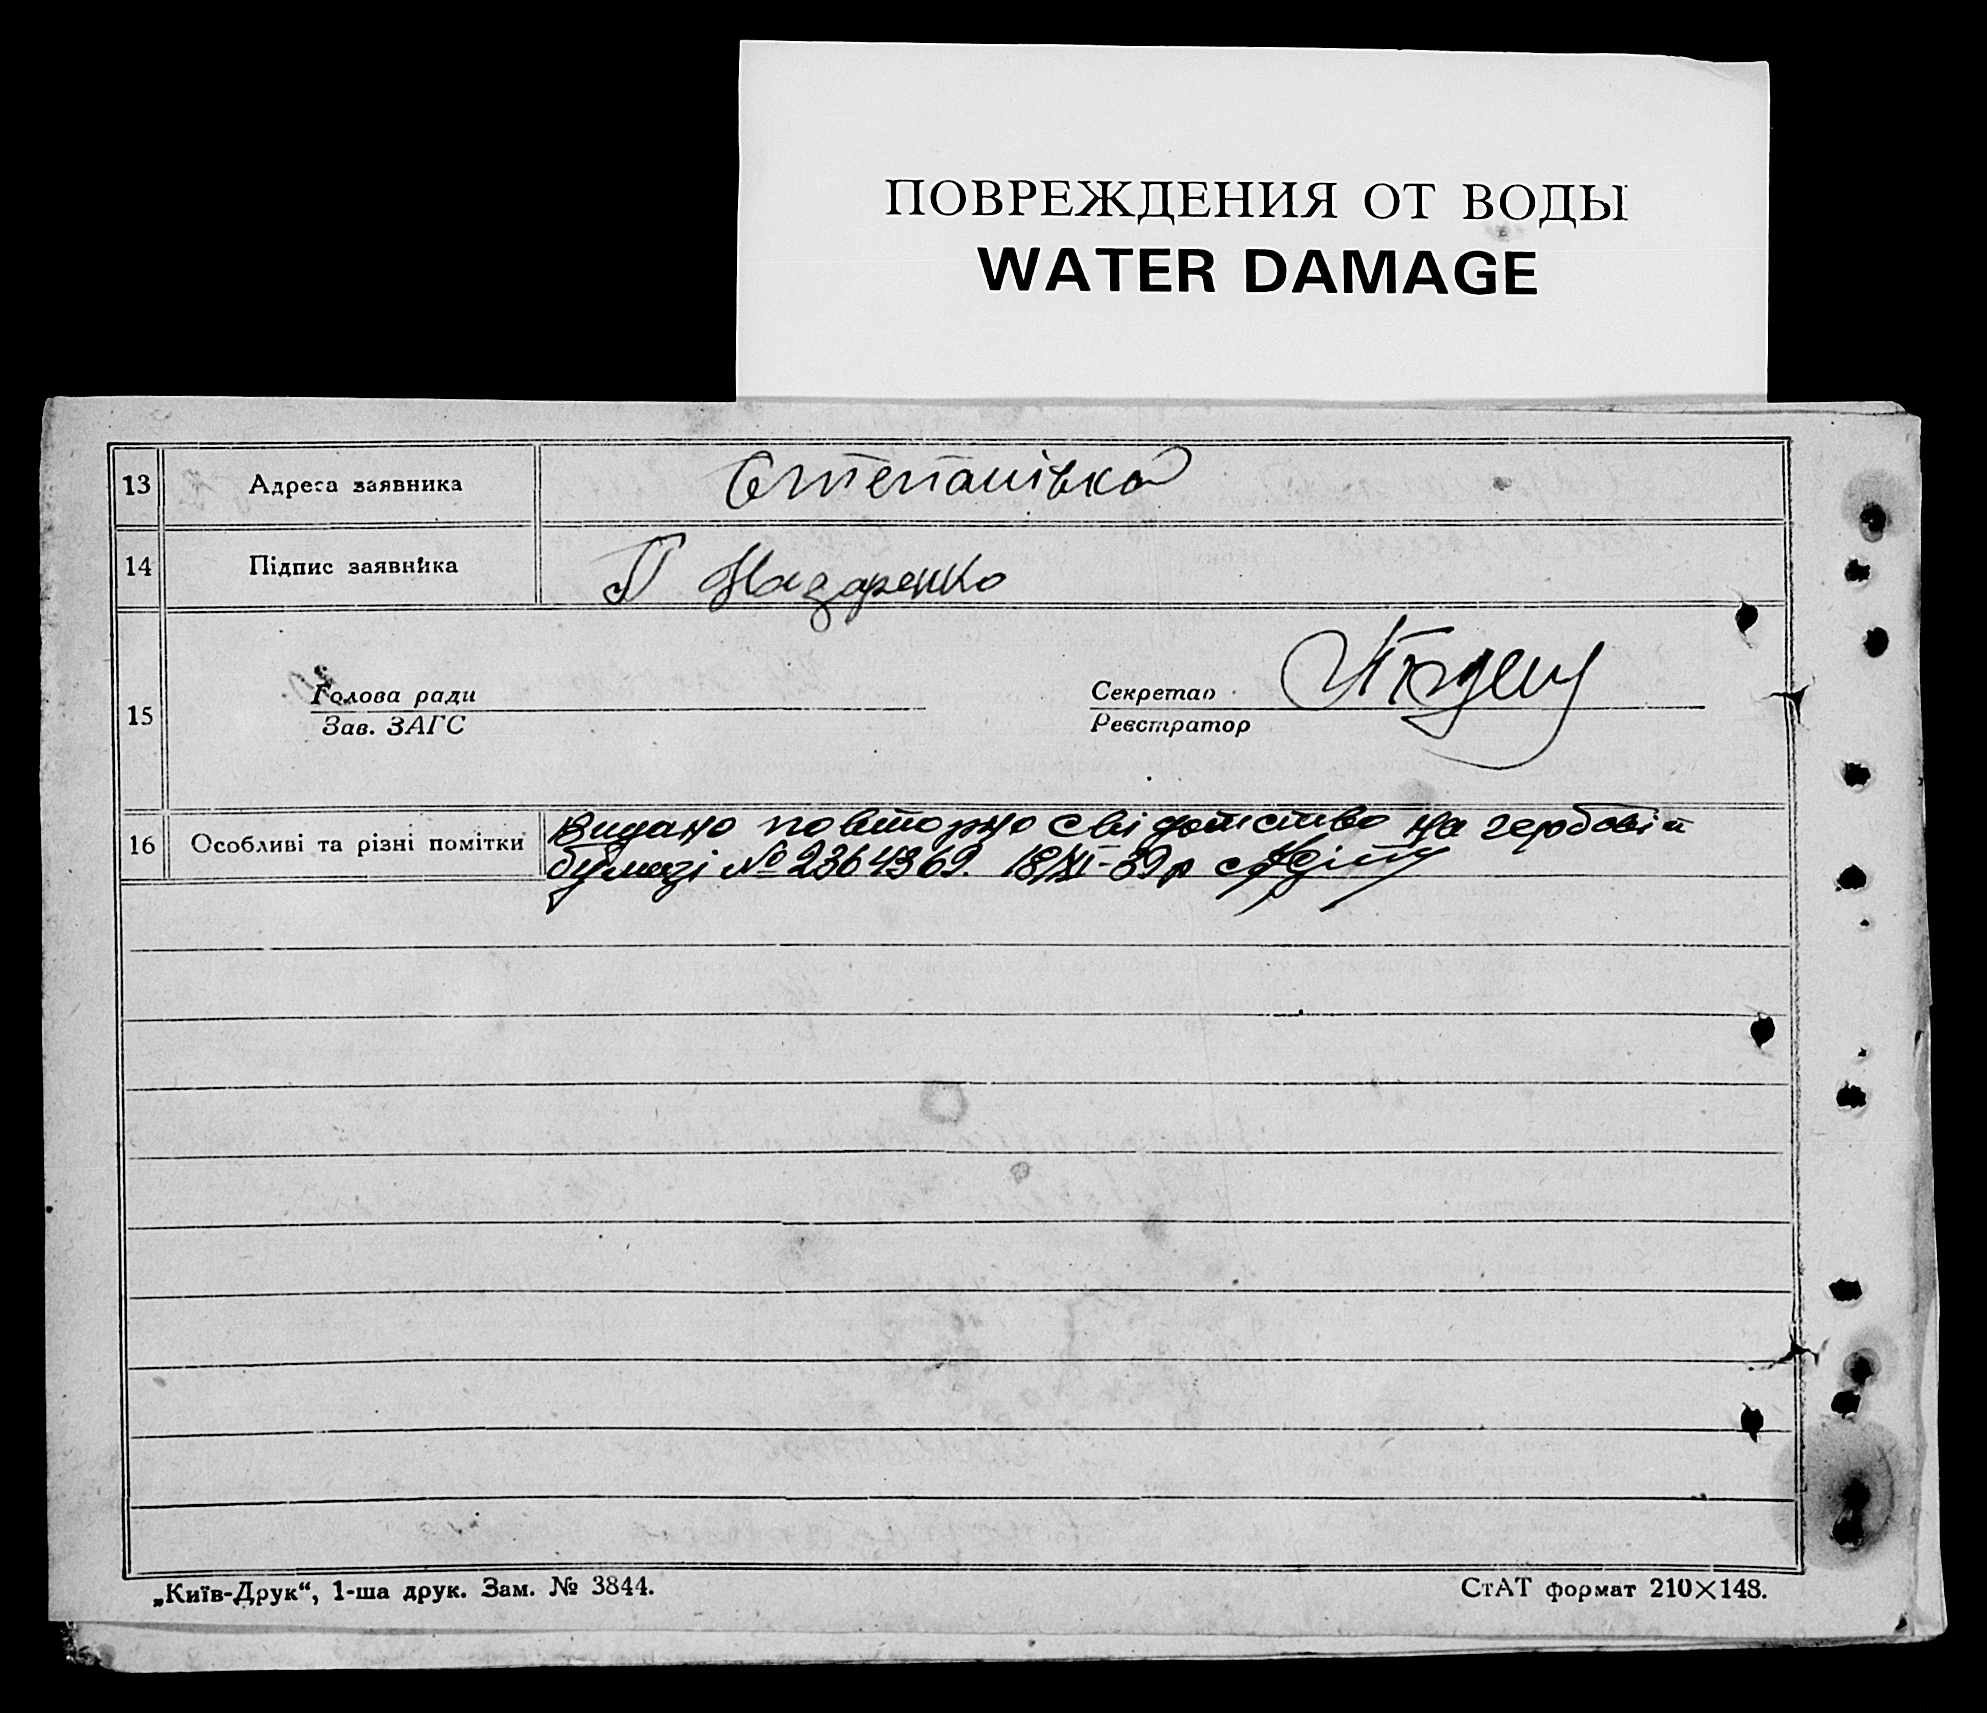 ПОВРЕЖДЕНИЯ ОТ ВОДЫ
WATER DAMAGE
13 Адреса заявника Степанівка
14 Підпис заявника П Назаренко
15
Голова ради
Зав. ЗАГС
Секретар
Реєстратор
16 Особливі та різні помітки Видано повторно свідотство на гербовій
бумазі № 2364369. 18/XI-39р
„Київ-Друк“, 1-ша друк. Зам. № 3844.
СтАТ формат 210×148.